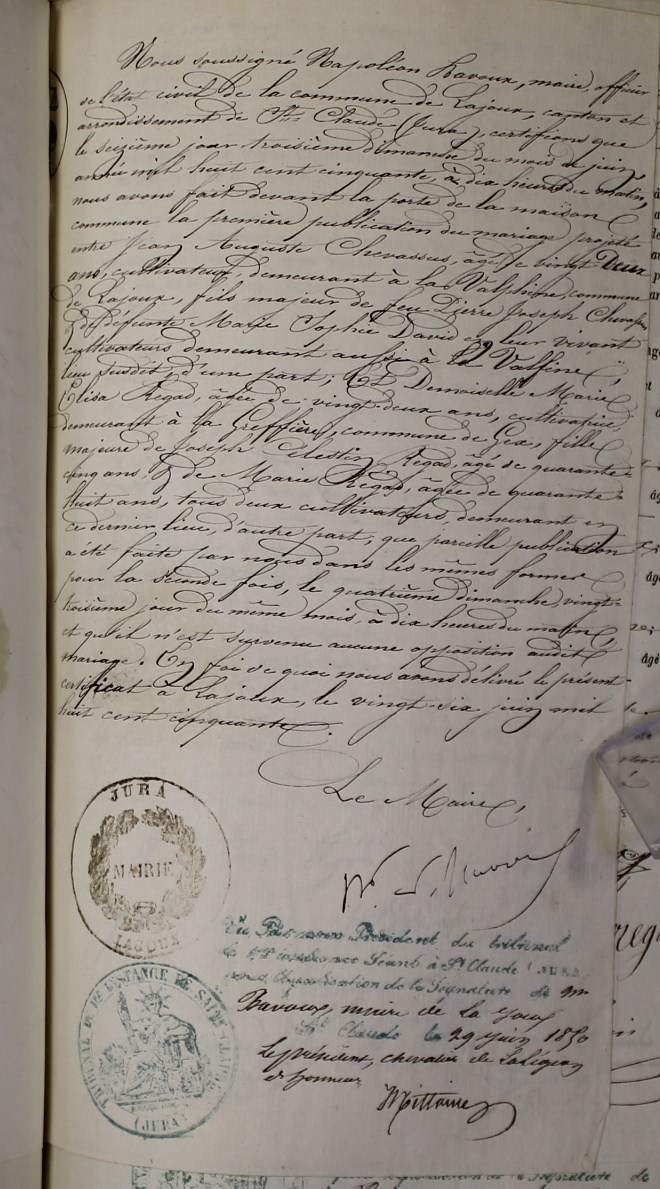 Nous soussigné Napoléon Bavoux, maire, officier
de l'état civil de la commune de Lajoux, canton et
arrondissement de St Claude (Jura), certifions que
le seizième jour troisième dimanche du mois de juin,
année mil huit cent cinquante, à dix heures du matin,
nous avons fait devant la porte de la maison
commune la première publication du mariage projeté
entre Jean Auguste Chevassus, âgé de vingt Deux
ans, cultivateur, demeurant à la Valfine, commune
de Lajoux, fils majeur de feu Pierre Joseph Chevassus
& de défunte Marie Sophie David en leur vivant
cultivateurs demeurant aussi à la Valfine,
lieu susdit, d'une part; Et Demoiselle Marie
Elisa Regad, âgée de vingt-deux ans, cultivatrice,
demeurant à la Greffière, commune de Gex, fille
majeure de Joseph Célestin Regad, âgé de quarante-
cinq ans, & de Marie Regad, âgée de quarante-
huit ans, tous deux cultivateurs demeurant en
ce dernier lieu, d'autre part; que pareille publication
a été faite par nous dans les mêmes formes
pour la seconde fois, le quatrième dimanche, vingt-
troisième jour du même mois, à dix heures du matin,
et qu'il n'est survenu aucune opposition audit
mariage. En foi de quoi nous avons délivré le présent
certificat à Lajoux, le vingt-six juin mil
huit cent cinquante.
Le Maire,
JURA
MAIRIE
LAJOUX
Vu Par nous Président du tribunal
de 1re instance Séant à St Claude (JURA)
pour légalisation de la Signature de Mr
Bavoux, maire de la Joux
St Claude le 29 juin 1850
Le président, chevalier de la légion
d'honneur
TRIBUNAL DE 1RE INSTANCE DE SAINT CLAUDE
(JURA)